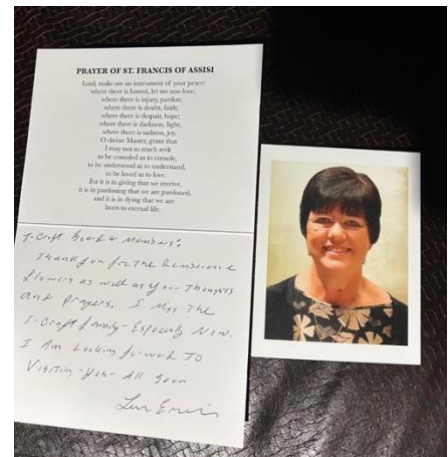 PRAYER OF ST. FRANCIS OF ASSISI
Lord, make me an instrument of your peace:
where there is hatred, let me sow love;
where there is injury, pardon;
where there is doubt, faith;
where there is despair, hope;
where there is darkness, light;
where there is sadness, joy.
O divine Master, grant that
I may not so much seek
to be consoled as to console,
to be understood as to understand,
to be loved as to love.
For it is in giving that we receive,
it is in pardoning that we are pardoned,
and it is in dying that we are
born to eternal life.
T-Craft Board & Members:
Thank you for the
flowers as well as your thoughts
and prayers. I miss the
T-Craft family - Especially Now.
I Am Looking forward TO
Visiting - you - All soon